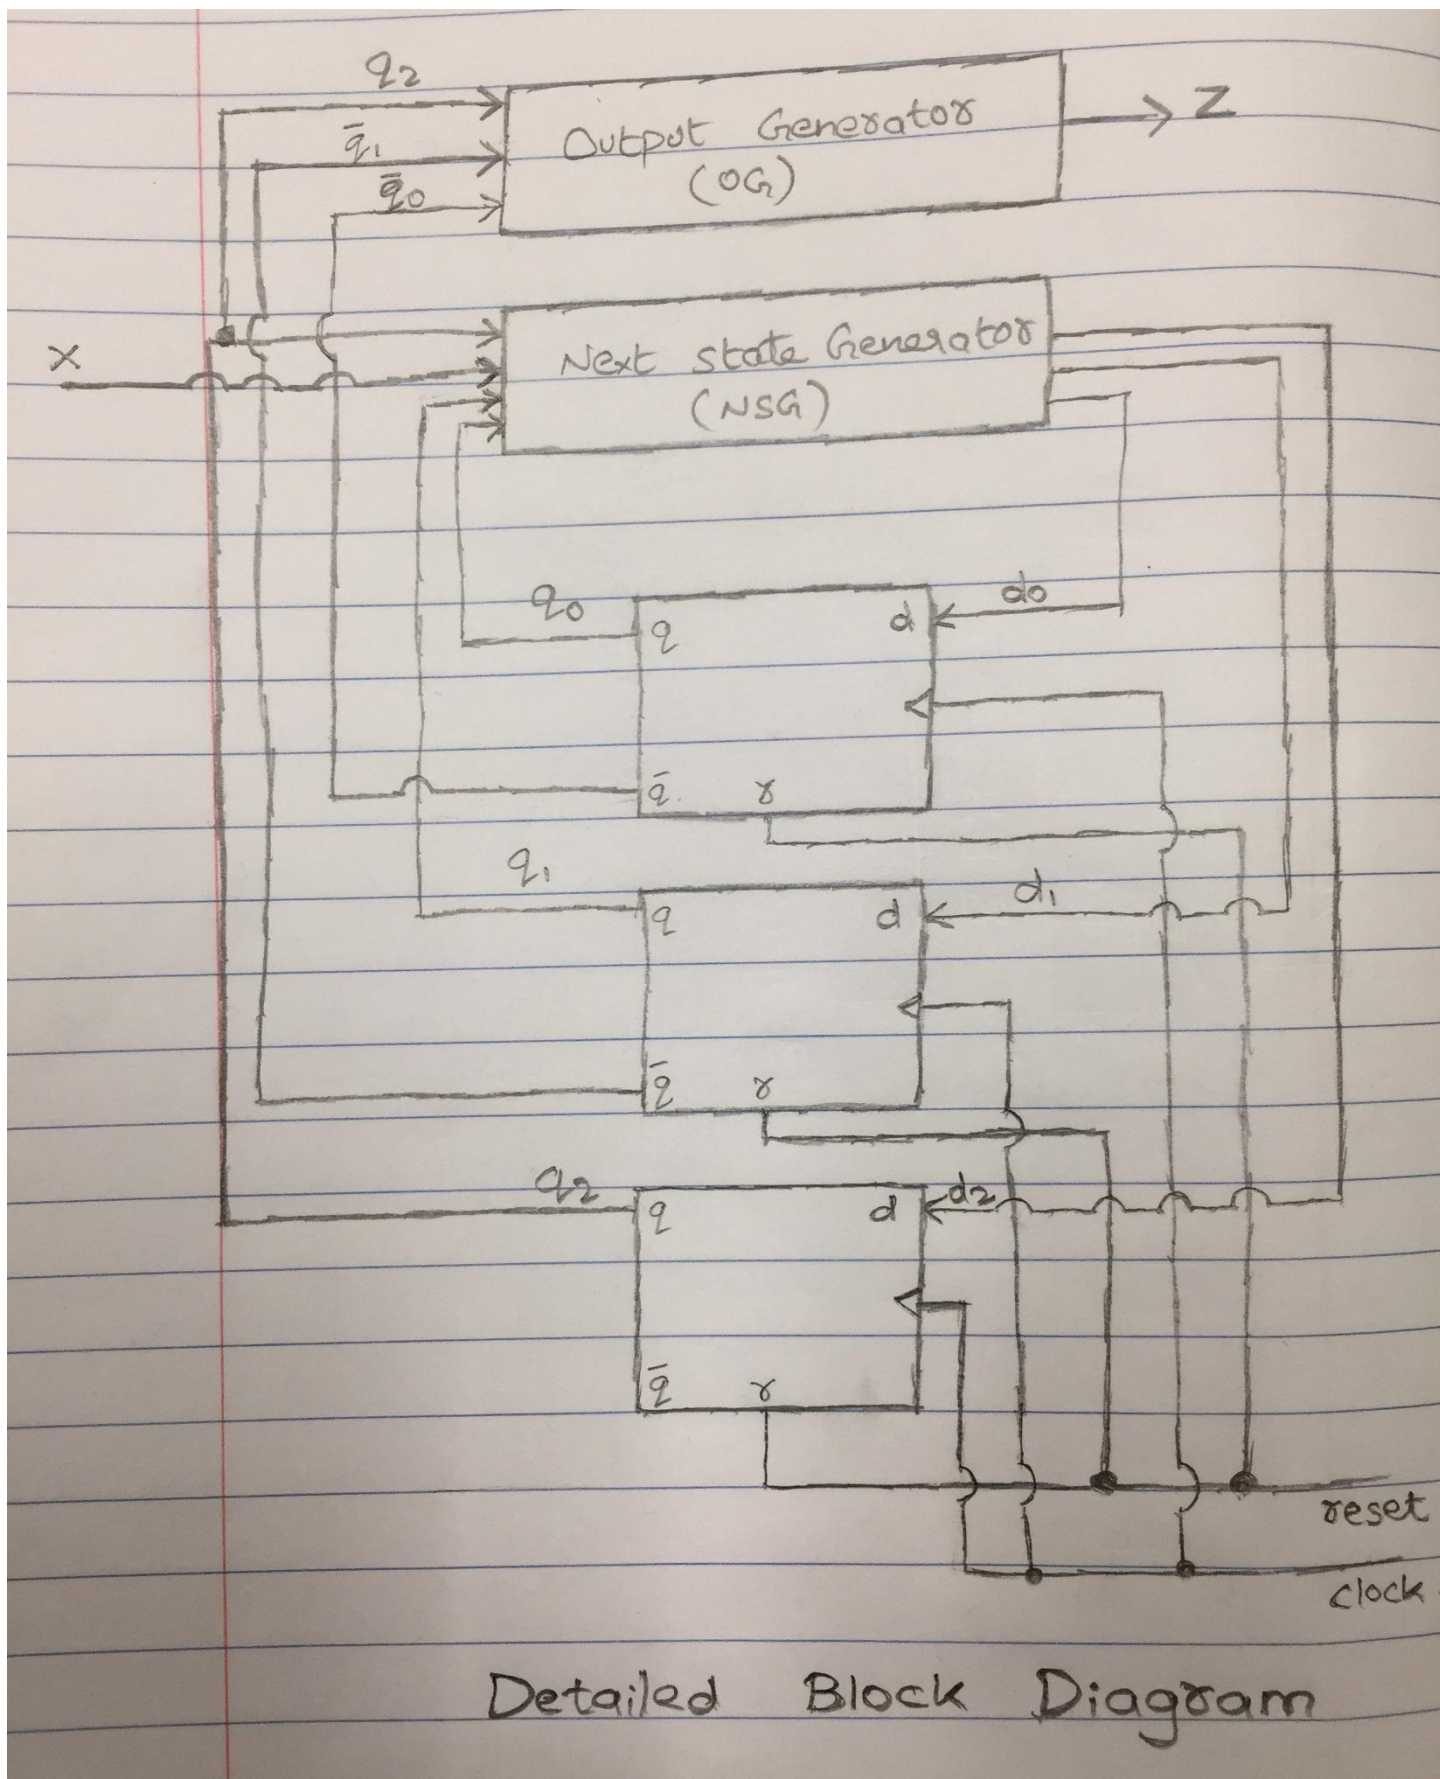 q2
q̄1
q̄0
Output Generator
(OG)
Z
X
Next State Generator
(NSG)
q0
d0
q
d
q̄
r
q1
d1
q
d
q̄
r
q2
d2
q
d
q̄
r
reset
clock
Detailed Block Diagram